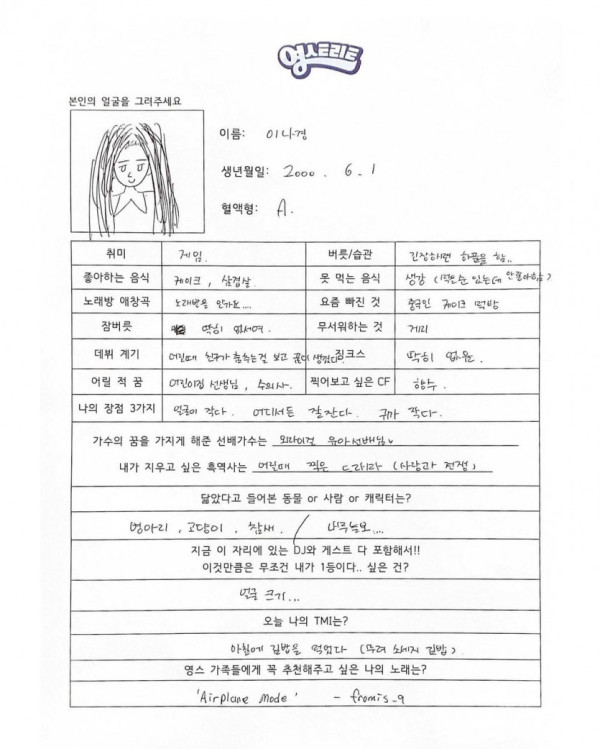 영스트리트
본인의 얼굴을 그려주세요
이름: 이나경
생년월일: 2000. 6. 1
혈액형: A.
취미 게임. 버릇/습관 긴장하면 하품을 함..
좋아하는 음식 케이크, 삼겹살. 못 먹는 음식 생강 (먹을순 있는데 안좋아함)
노래방 애창곡 노래방을 안가요.... 요즘 빠진 것 중국인 케이크 먹방
잠버릇 딱히 없어여. 무서워하는 것
데뷔 계기 어릴때 친구가 춤추는걸 보고 꿈이 생겼다. 징크스 딱히 없음.
어릴 적 꿈 어린이집 선생님, 수의사. 찍어보고 싶은 CF 향수.
나의 장점 3가지 얼굴이 작다. 어디서든 잘잔다. 귀가 작다.
가수의 꿈을 가지게 해준 선배가수는 오마이걸 유아선배님
내가 지우고 싶은 흑역사는 어릴때 찍은 드라마 (사랑과 전쟁)
닮았다고 들어본 동물 or 사람 or 캐릭터는?
병아리, 고양이, 참새. /
지금 이 자리에 있는 DJ와 게스트 다 포함해서!!
이것만큼은 무조건 내가 1등이다.. 싶은 건?
얼굴 크기...
오늘 나의 TMI는?
아침에 김밥을 먹었다 ( 소세지 김밥).
영스 가족들에게 꼭 추천해주고 싶은 나의 노래는?
'Airplane mode' - fromis_9